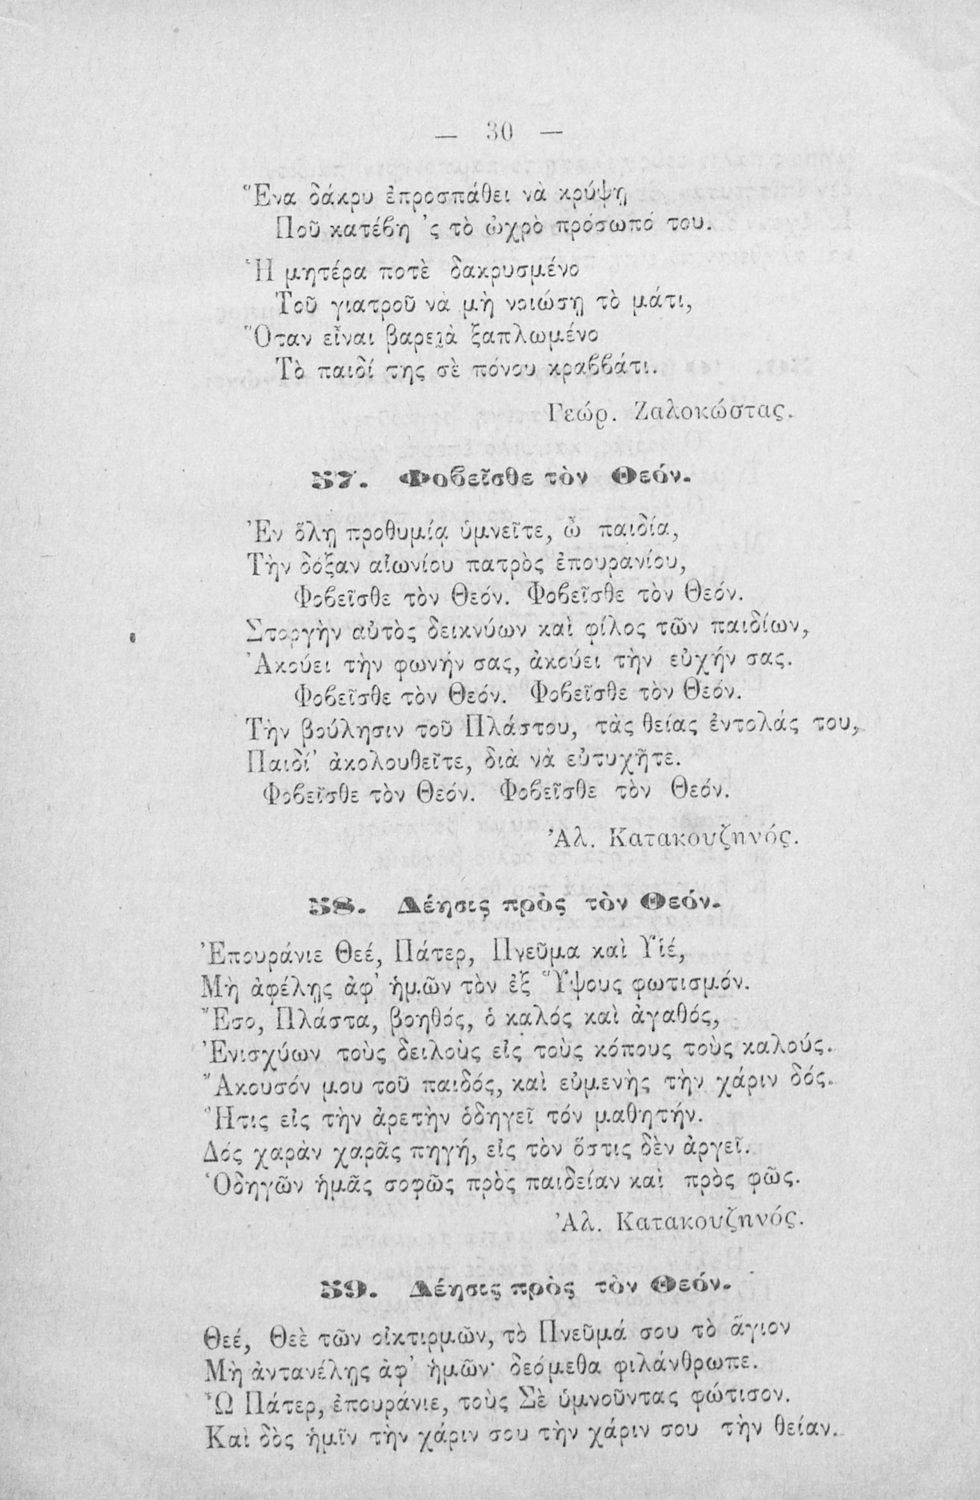 — 30 —
Ἕνα δάκρυ ἐπροσπάθει νὰ κρύψῃ
Ποῦ κατέβη ’ς τὸ ὠχρὸ πρόσωπό του.
Ἡ μητέρα ποτὲ δακρυσμένο
Τοῦ γιατροῦ νὰ μὴ νοιώσῃ τὸ μάτι,
Ὅταν εἶναι βαρειὰ ξαπλωμένο
Τὸ παιδί της σὲ πόνου κραββάτι.
Γεώρ. Ζαλοκώστας.
57. Φοβεῖσθε τὸν Θεόν.
Ἐν ὅλῃ προθυμίᾳ ὑμνεῖτε, ὦ παιδία,
Τὴν δόξαν αἰωνίου πατρὸς ἐπουρανίου,
Φοβεῖσθε τὸν Θεόν. Φοβεῖσθε τὸν Θεόν.
Στοργὴν αὐτὸς δεικνύων καὶ φίλος τῶν παιδίων,
Ἀκούει τὴν φωνήν σας, ἀκούει τὴν εὐχήν σας.
Φοβεῖσθε τὸν Θεόν. Φοβεῖσθε τὸν Θεόν.
Τὴν βούλησιν τοῦ Πλάστου, τὰς θείας ἐντολάς του,
Παιδί’ ἀκολουθεῖτε, διὰ νὰ εὐτυχῆτε.
Φοβεῖσθε τὸν Θεόν. Φοβεῖσθε τὸν Θεόν.
Ἀλ. Κατακουζηνός.
58. Δέησις πρὸς τὸν Θεόν.
Ἐπουράνιε Θεέ, Πάτερ, Πνεῦμα καὶ Υἱέ,
Μὴ ἀφέλῃς ἀφ’ ἡμῶν τὸν ἐξ Ὕψους φωτισμόν.
Ἔσο, Πλάστα, βοηθός, ὁ καλός καὶ ἀγαθός,
Ἐνισχύων τοὺς δειλοὺς εἰς τοὺς κόπους τοὺς καλούς.
Ἄκουσόν μου τοῦ παιδός, καὶ εὐμενὴς τὴν χάριν δός.
Ἥτις εἰς τὴν ἀρετὴν ὁδηγεῖ τόν μαθητήν.
Δός χαρὰν χαρᾶς πηγή, εἰς τὸν ὅστις δὲν ἀργεῖ.
Ὁδηγῶν ἡμᾶς σοφῶς πρὸς παιδείαν καὶ πρὸς φῶς.
Ἀλ. Κατακουζηνός.
59. Δέησις πρὸς τὸν Θεόν.
Θεέ, Θεὲ τῶν οἰκτιρμῶν, τὸ Πνεῦμά σου τὸ ἅγιον
Μὴ ἀντανέλῃς ἀφ’ ἡμῶν· δεόμεθα φιλάνθρωπε.
Ὦ Πάτερ, ἐπουράνιε, τοὺς Σὲ ὑμνοῦντας φώτισον.
Καὶ δὸς ἡμῖν τὴν χάριν σου τὴν χάριν σου τὴν θείαν.